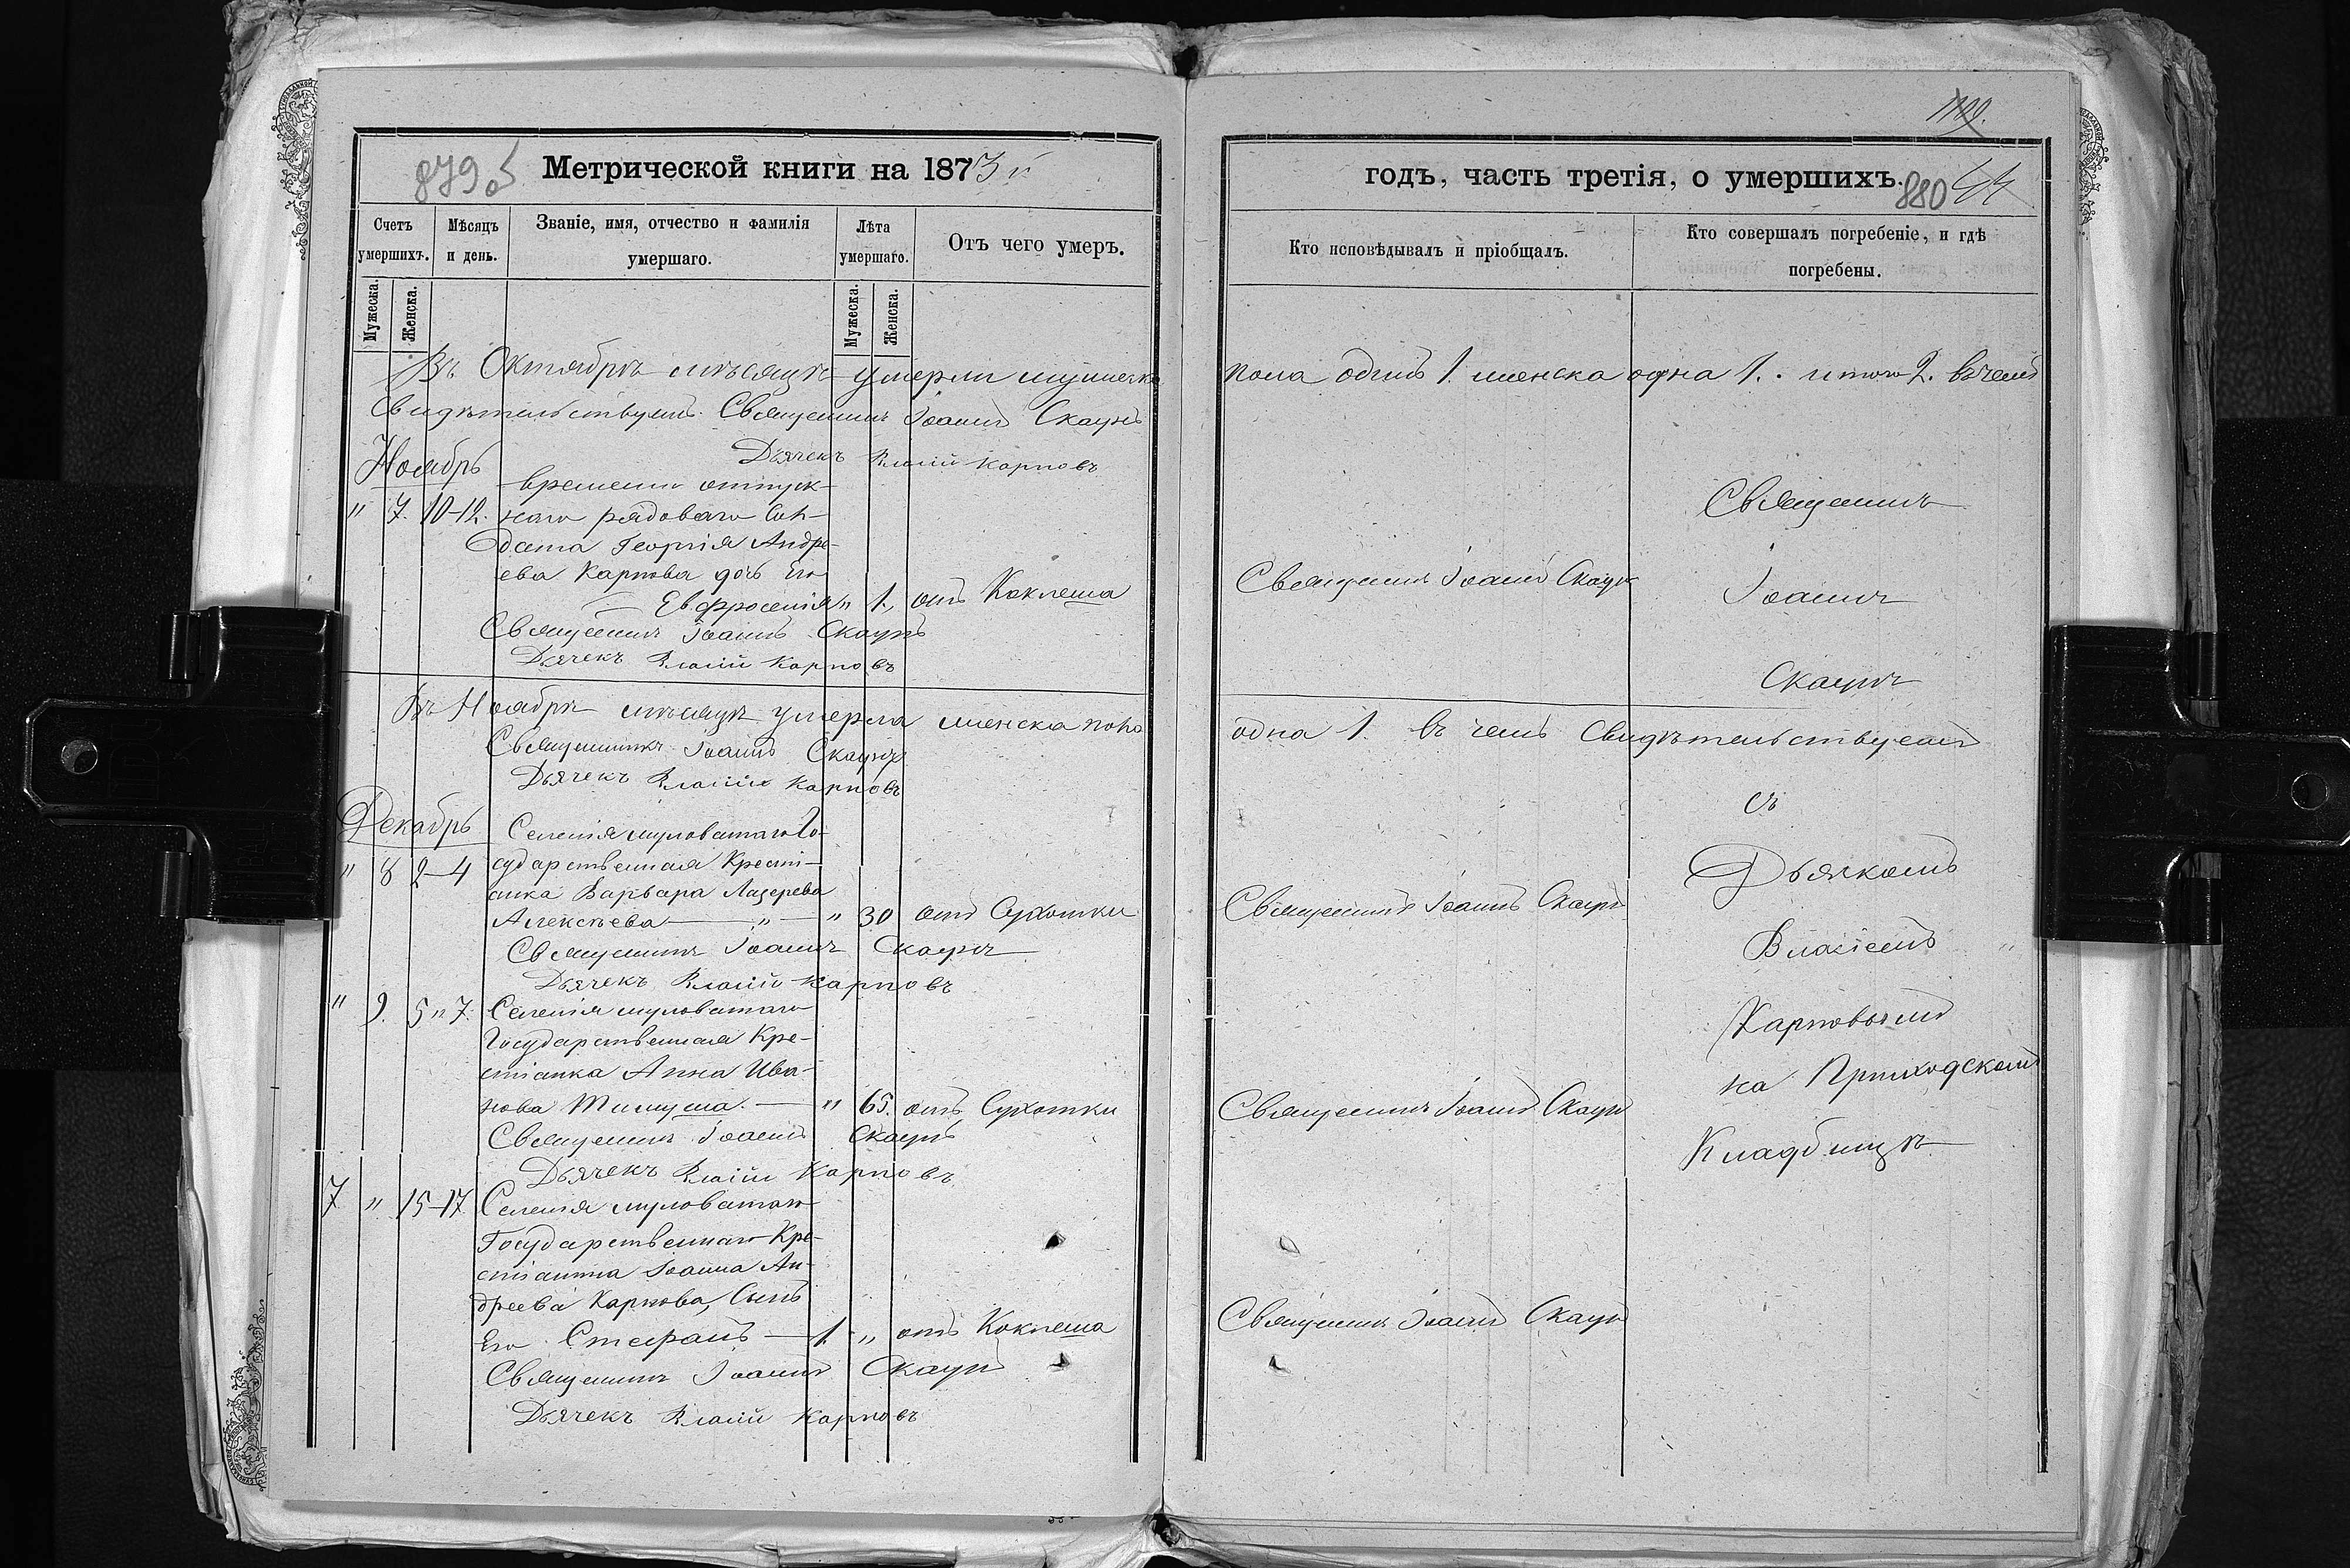 879об
Метрической книги на 1873й
Счетъ умершихъ.
Мѣсяцъ и день.
Званіе, имя, отчество и фамилія умершаго.
Лѣта умершаго.
Отъ чего умеръ.
Мужеска.
Женска.
Мужеска.
Женска.
Въ Октябрѣ мѣсяцѣ умерли мужеска
Свидѣтельствуемъ. Священникъ Іоаннъ Скаунъ
Дьячекъ Власій Карповъ
Ноябрь
временно отпуск-
" 7. 10-12. наго рядоваго Сол-
дата Георгія Андре-
ева Карпова дочь Его
Евфросенія " 1. отъ Коклеша
Священникъ Іоаннъ Скаунъ
Дьячекъ Власій Карповъ
Въ Ноябрѣ мѣсяцѣ умерла женска пола
Священникъ Іоаннъ Скаунъ
Дьячекъ Власій Карповъ
Декабрь
Селенія муловатаго Го-
" 8 2-4 сударственная Кресті-
анка Варвара Лазерева
Алексѣева " " 30 отъ Сухотки
Священникъ Іоаннъ Скаунъ
Дьячекъ Власій Карповъ
" 9. 5 " 7. Селенія муловатаго
Государственная Кре-
стіанка Анна Ива-
нова " 65. отъ Сухотки
Священникъ Іоаннъ Скаунъ
Дьячекъ Власій Карповъ
7 " 15-17 Селенія муловатаго
Государственнаго Кре-
стіанина Іоанна Ан-
дреева Карпова, Сынъ
Его Стефанъ 1. " отъ Коклеша
Священникъ Іоаннъ Скаунъ
Дьячекъ Власій Карповъ
годъ, часть третія, о умершихъ.
880
Кто исповѣдывалъ и пріобщалъ.
Кто совершалъ погребеніе, и гдѣ погребены.
пола одинъ 1. женска одна 1. итого 2. въ чемъ
Священникъ
Священникъ Іоаннъ Скаунъ
Іоаннъ
Скаунъ
одна 1. въ чемъ Свидѣтельствуемъ
съ
Дьячкомъ
Священникъ Іоаннъ Скаунъ
Власіемъ
Карповымъ
на Приходскомъ
Священникъ Іоаннъ Скаунъ
Кладбищѣ
Священникъ Іоаннъ Скаунъ